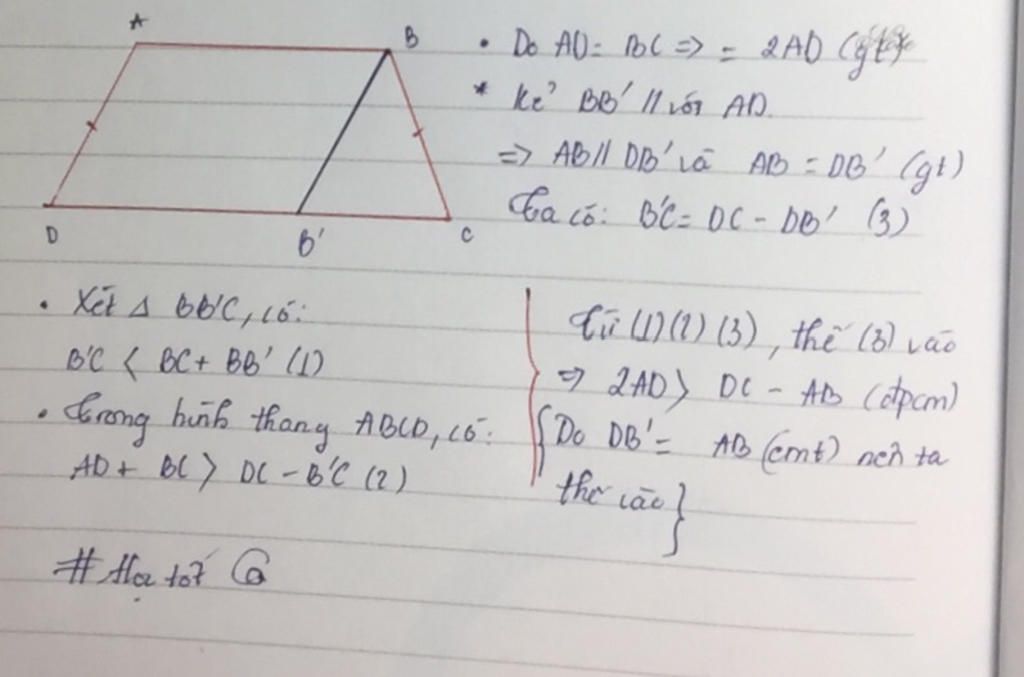 A
B
D
B'
C
• Do AD = BC => = 2AD (gt)
* Kẻ BB' // với AD.
=> AB // DB' và AB = DB' (gt)
Ta có: B'C = DC - DB' (3)
• Xét Δ BB'C, có:
B'C < BC + BB' (1)
• Trong hình thang ABCD, có:
AD + BC > DC - B'C (2)
Từ (1) (2) (3), thế (3) vào
=> 2AD > DC - AB (đpcm)
{ Do DB' = AB (cmt) nên ta
thế vào }
# Học tốt